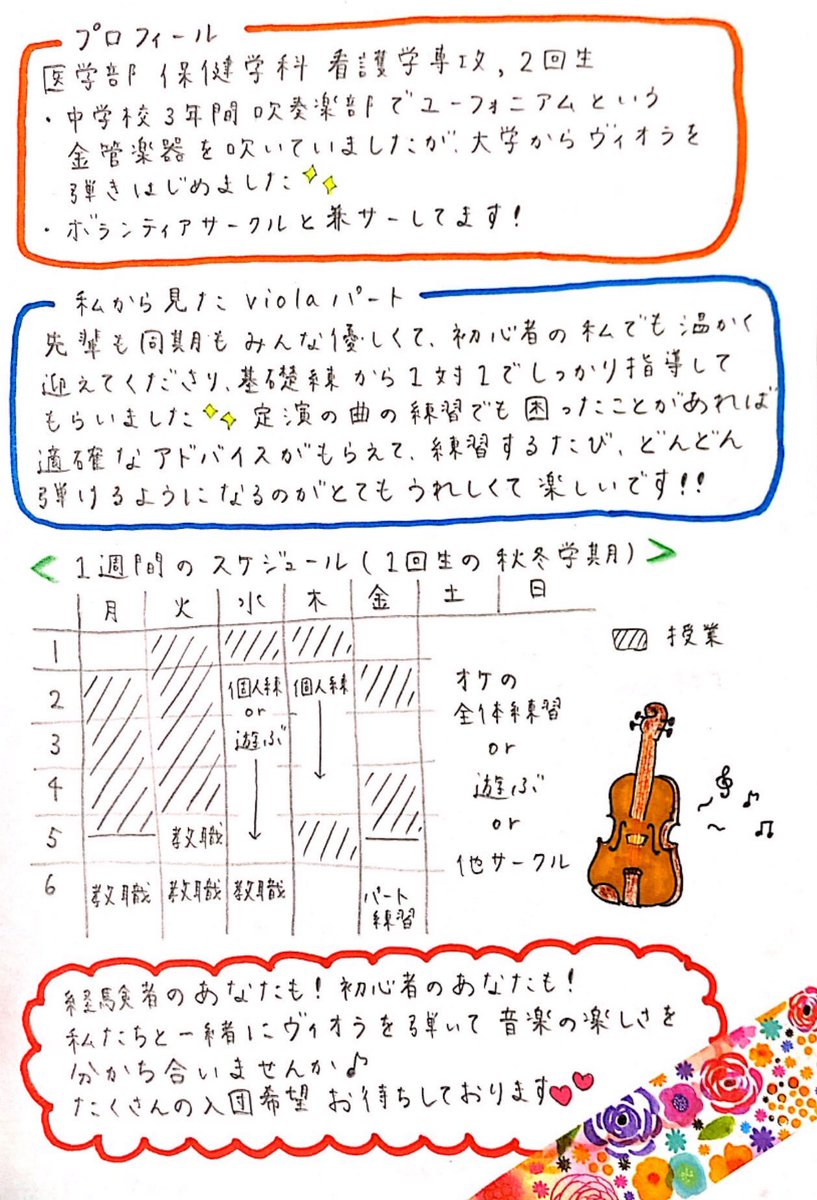 プロフィール
医学部 保健学科 看護学専攻, 2回生
・中学校3年間 吹奏楽部でユーフォニアムという
金管楽器を吹いていましたが、大学からヴィオラを
弾きはじめました
・ボランティアサークルと兼サーしてます!
私から見た violaパート
先輩も同期もみんな優しくて、初心者の私でも温かく
迎えてくださり、基礎練から1対1でしっかり指導して
もらいました 定演の曲の練習でも困ったことがあれば
適確なアドバイスがもらえて、練習するたび、どんどん
弾けるようになるのがとてもうれしくて楽しいです!!
<1週間のスケジュール(1回生の秋冬学期)>
月 火 水 木 金 土 日
1
授業
2 個人練 個人練
or
遊ぶ
オケの
全体練習
or
遊ぶ
or
他サークル
3
4
5 教職
6 教職 教職 教職 パート
練習
経験者のあなたも!初心者のあなたも!
私たちと一緒にヴィオラを弾いて音楽の楽しさを
分かち合いませんか♪
たくさんの入団希望 お待ちしております